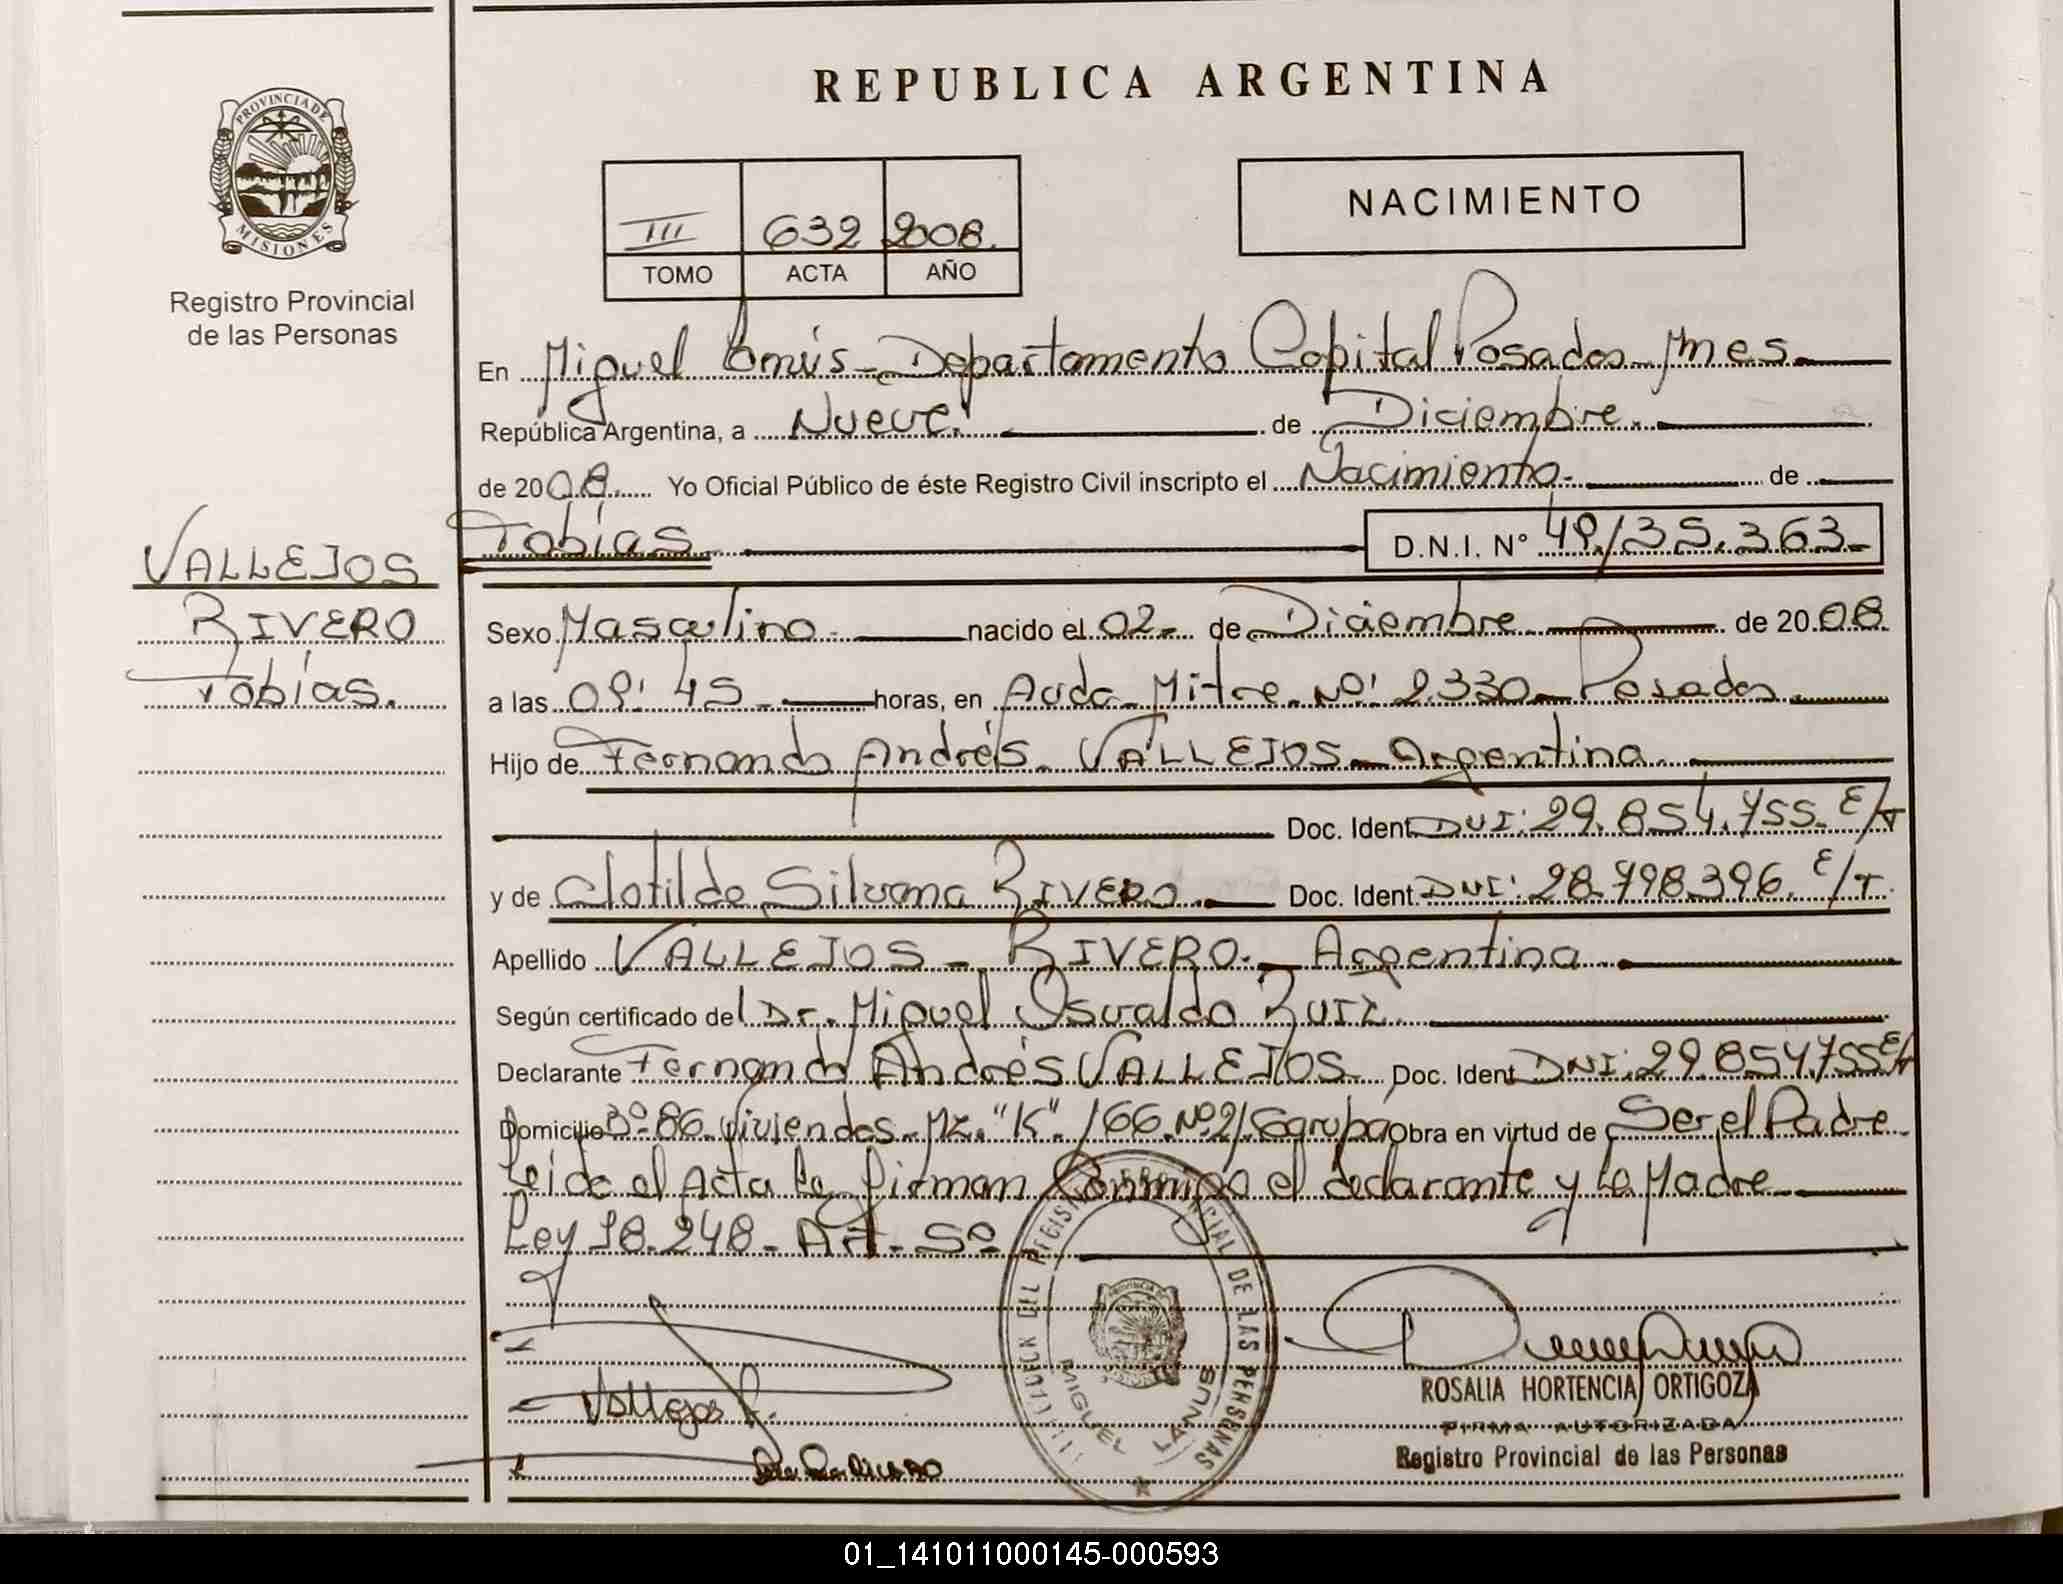 REPUBLICA ARGENTINA
PROVINCIA DE
MISIONES
Registro Provincial
de las Personas
III 632 2008.
TOMO ACTA AÑO
NACIMIENTO
En Miguel Lanús - Departamento Capital Posadas - Mnes.
República Argentina, a Nueve. de Diciembre.
de 2008. Yo Oficial Público de éste Registro Civil inscripto el Nacimiento. de
Tobías D.N.I. N° 49.135.363-
VALLEJOS
RIVERO
Tobías.
Sexo Masculino. nacido el 02. de Diciembre de 2008
a las 09: 45 horas, en Avda. Mitre. Nº: 2.330 - Posadas.
Hijo de Fernando Andrés VALLEJOS - Argentina.
Doc. Ident. DNI: 29.854.755. E/T
y de Clotilde Silvana RIVERO. Doc. Ident. DNI: 28.798.396. E/T.
Apellido VALLEJOS - RIVERO. - Argentina
Según certificado del Dr. Miguel Osvaldo Ruiz.
Declarante Fernando Andrés VALLEJOS. Doc. Ident DNI: 29.854.755 E/T
Domicilio Bº. 86. Viviendas. Mz. "K". /66. Nº 21. Garupá obra en virtud de Ser el Padre
Leída el Acta la firman Conmigo el declarante y la Madre
Ley 18.248 - Art. 5º
Vallejos F.
DEL REGISTRO PROVINCIAL DE LAS PERSONAS
MIGUEL LANUS
ROSALIA HORTENCIA ORTIGOZA
FIRMA AUTORIZADA
Registro Provincial de las Personas
01_141011000145-000593